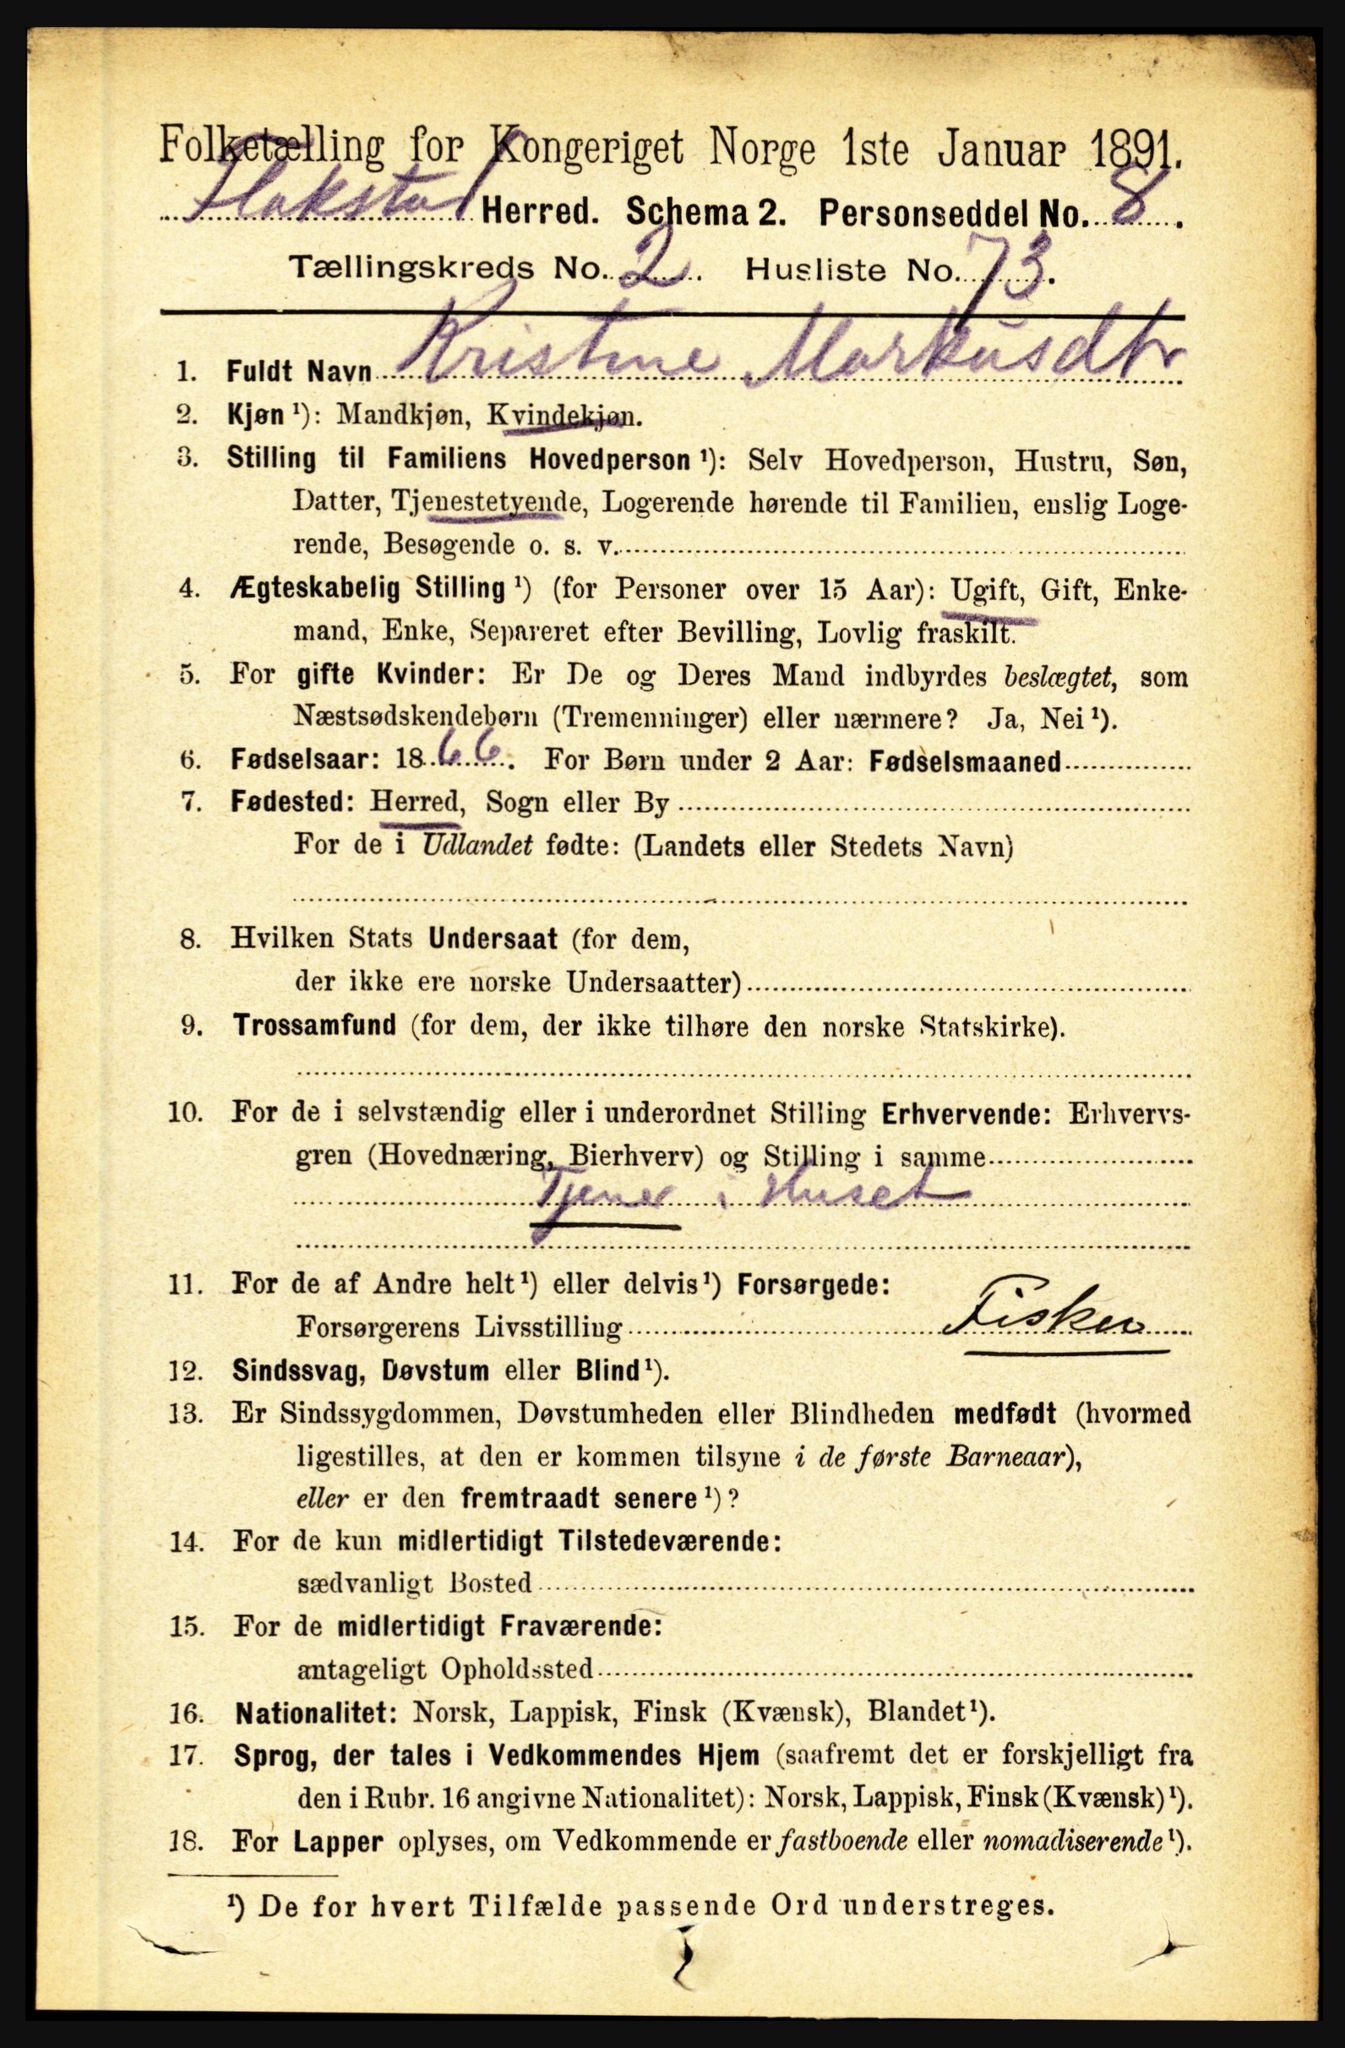 Folketælling for Kongeriget Norge 1ste Januar 1891.
Flakstad Herred. Schema 2. Personseddel No. 8.
Tællingskreds No. 2. Husliste No. 73.
1. Fuldt Navn Kristine Markusdtr
2. Kjøn ¹): Mandkjøn, Kvindekjøn.
3. Stilling til Familiens Hovedperson ¹): Selv Hovedperson, Hustru, Søn,
Datter, Tjenestetyende, Logerende hørende til Familien, enslig Loge-
rende, Besøgende o. s. v.
4. Ægteskabelig Stilling ¹) (for Personer over 15 Aar): Ugift, Gift, Enke-
mand, Enke, Separeret efter Bevilling, Lovlig fraskilt.
5. For gifte Kvinder: Er De og Deres Mand indbyrdes beslægtet, som
Næstsødskendebørn (Tremenninger) eller nærmere? Ja, Nei ¹).
6. Fødselsaar: 1866. For Børn under 2 Aar: Fødselsmaaned
7. Fødested: Herred, Sogn eller By
For de i Udlandet fødte: (Landets eller Stedets Navn)
8. Hvilken Stats Undersaat (for dem,
der ikke ere norske Undersaatter)
9. Trossamfund (for dem, der ikke tilhøre den norske Statskirke).
10. For de i selvstændig eller i underordnet Stilling Erhvervende: Erhvervs-
gren (Hovednæring, Bierhverv) og Stilling i samme
Tjener i Huset
11. For de af Andre helt ¹) eller delvis ¹) Forsørgede:
Forsørgerens Livsstilling Fisker
12. Sindssvag, Døvstum eller Blind ¹).
13. Er Sindssygdommen, Døvstumheden eller Blindheden medfødt (hvormed
ligestilles, at den er kommen tilsyne i de første Barneaar),
eller er den fremtraadt senere ¹)?
14. For de kun midlertidigt Tilstedeværende:
sædvanligt Bosted
15. For de midlertidigt Fraværende:
antageligt Opholdssted
16. Nationalitet: Norsk, Lappisk, Finsk (Kvænsk), Blandet ¹).
17. Sprog, der tales i Vedkommendes Hjem (saafremt det er forskjelligt fra
den i Rubr. 16 angivne Nationalitet): Norsk, Lappisk, Finsk (Kvænsk) ¹).
18. For Lapper oplyses, om Vedkommende er fastboende eller nomadiserende ¹).
¹) De for hvert Tilfælde passende Ord understreges.